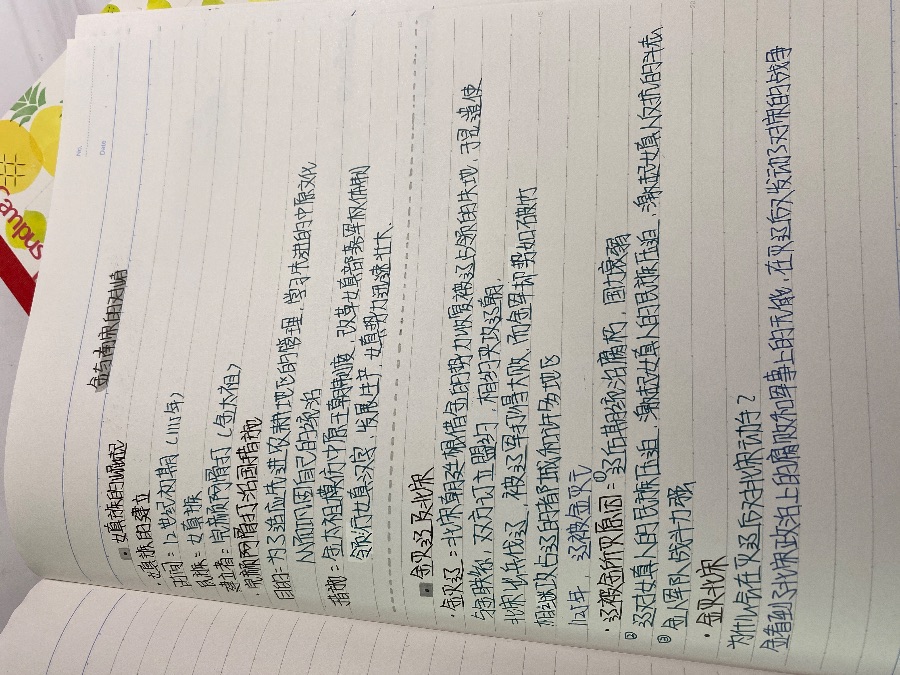 No.
Date
金与南宋的对峙
▪ 女真族的崛起
女真族的建立
时间：12世纪初期（1115年）
民族：女真族
建立者：完颜阿骨打（金太祖）
完颜阿骨打治国措施
目的：为了适应先进农耕地区的管理，学习先进的中原文化
从而巩固自己的统治
措施：金太祖模仿中原王朝制度，改革女真部落军权体制
颁行女真汉字，发展生产，女真势力迅速壮大.
▪ 金灭辽及北宋
· 金灭辽：北宋朝廷想借金的势力恢复被辽占领的失地，于是遣使
与金联系，双方订立盟约，相约夹攻辽朝
北宋出兵伐辽，被辽军打得大败，而金军却势如破竹
相继攻占辽的都城和许多地区
1125年，辽被金灭亡
· 辽被金所灭原因：①辽后期统治腐朽，国力衰弱
② 辽对女真人的民族压迫，激起女真人的民族压迫，激起女真人对抗的斗志
③ 金人军队战斗力强
· 金灭北宋
为什么金在灭辽后又对北宋动手？
金看到了北宋政治上的腐败和军事上的无能，在灭辽后又发动了对宋的战争
sndwe